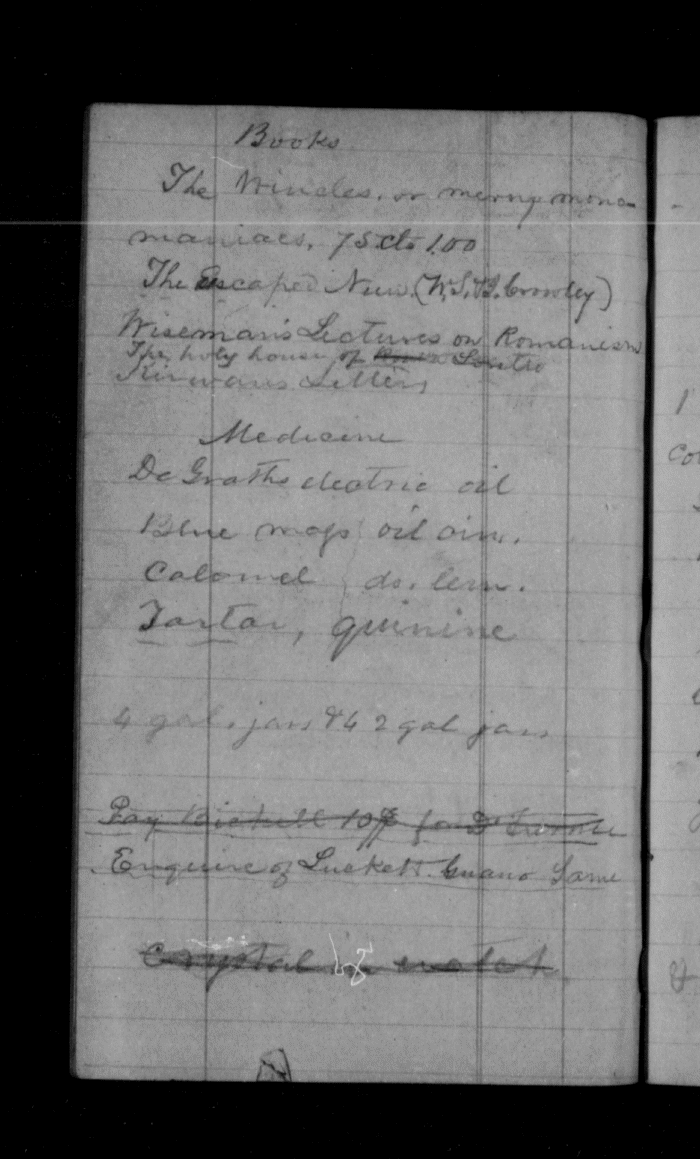 Books
The Wincles, or merry mono-
maniacs, 75 cts 1.00
The Escaped Nun (W.S.B. Crowley)
Wiseman's Lectures on Romanism
The holy house of Loretto
Kirwans Letters
Medicine
De Graths electric oil
Blue mass oil
Calomel
Tartar, quinine
4 gal. jars & 4 2 gal jars
Pay Bickell for Dr
Enquire of Luckett Guano Lame
Crystal in watch
18